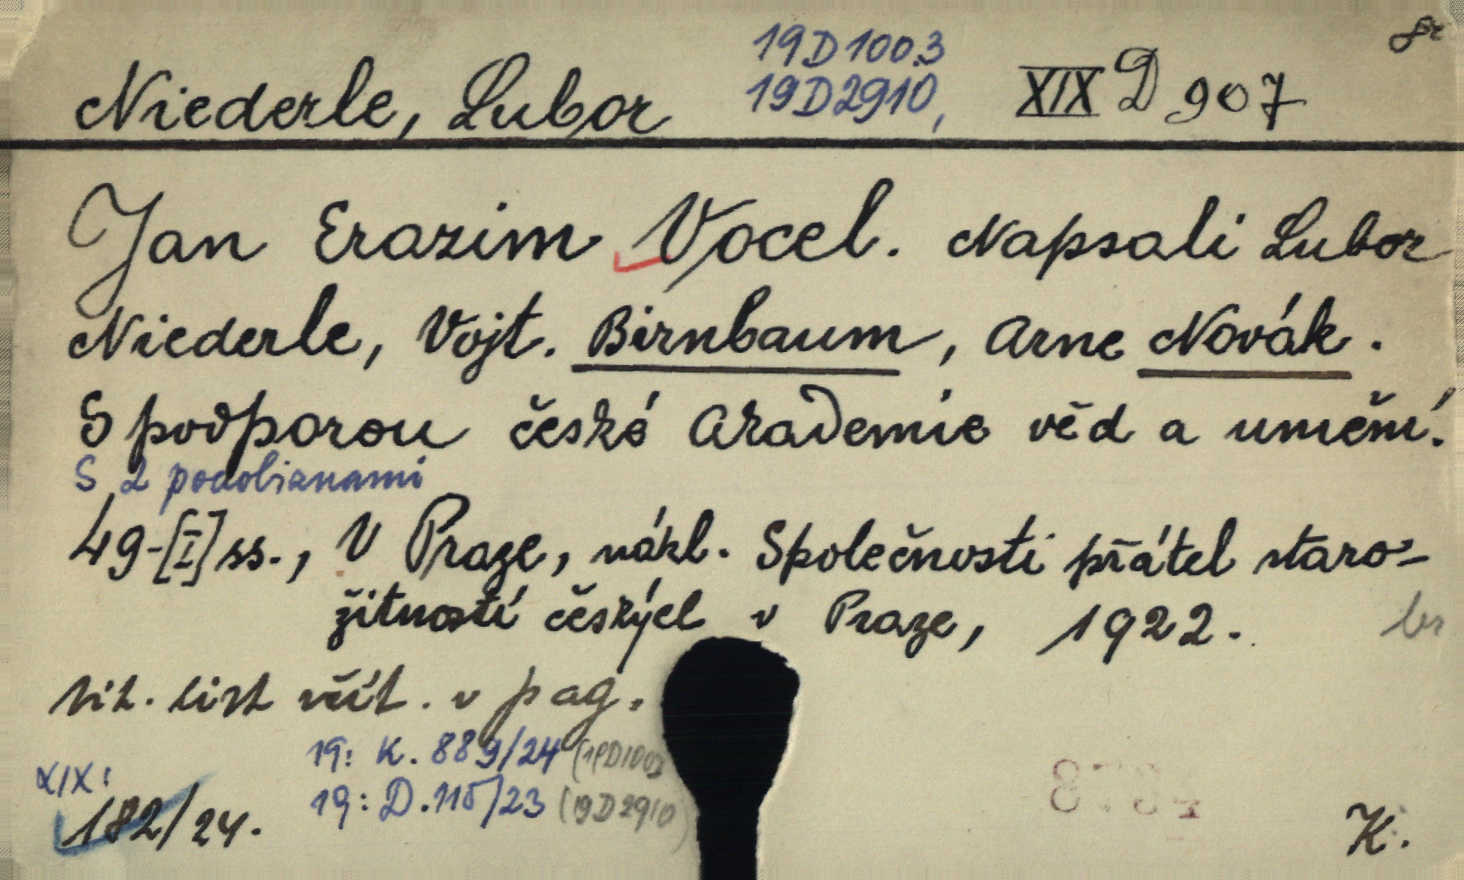 19D1003 8r
Niederle, Lubor 19D2910, XIX D 907
Jan Erazim Vocel. Napsali Lubor
Niederle, Vojt. Birnbaum, Arne Novák.
S podporou české Akademie věd a umění.
S 2 podobiznami
49-[I] ss., V Praze, nákl. Společnosti přátel staro-
žitností českých v Praze, 1922.
br
tit. list včít. v pag.
19: K. 889/24 (19D1003
XIX: 19: D.115/23 (19D2910)
182/24.
K.